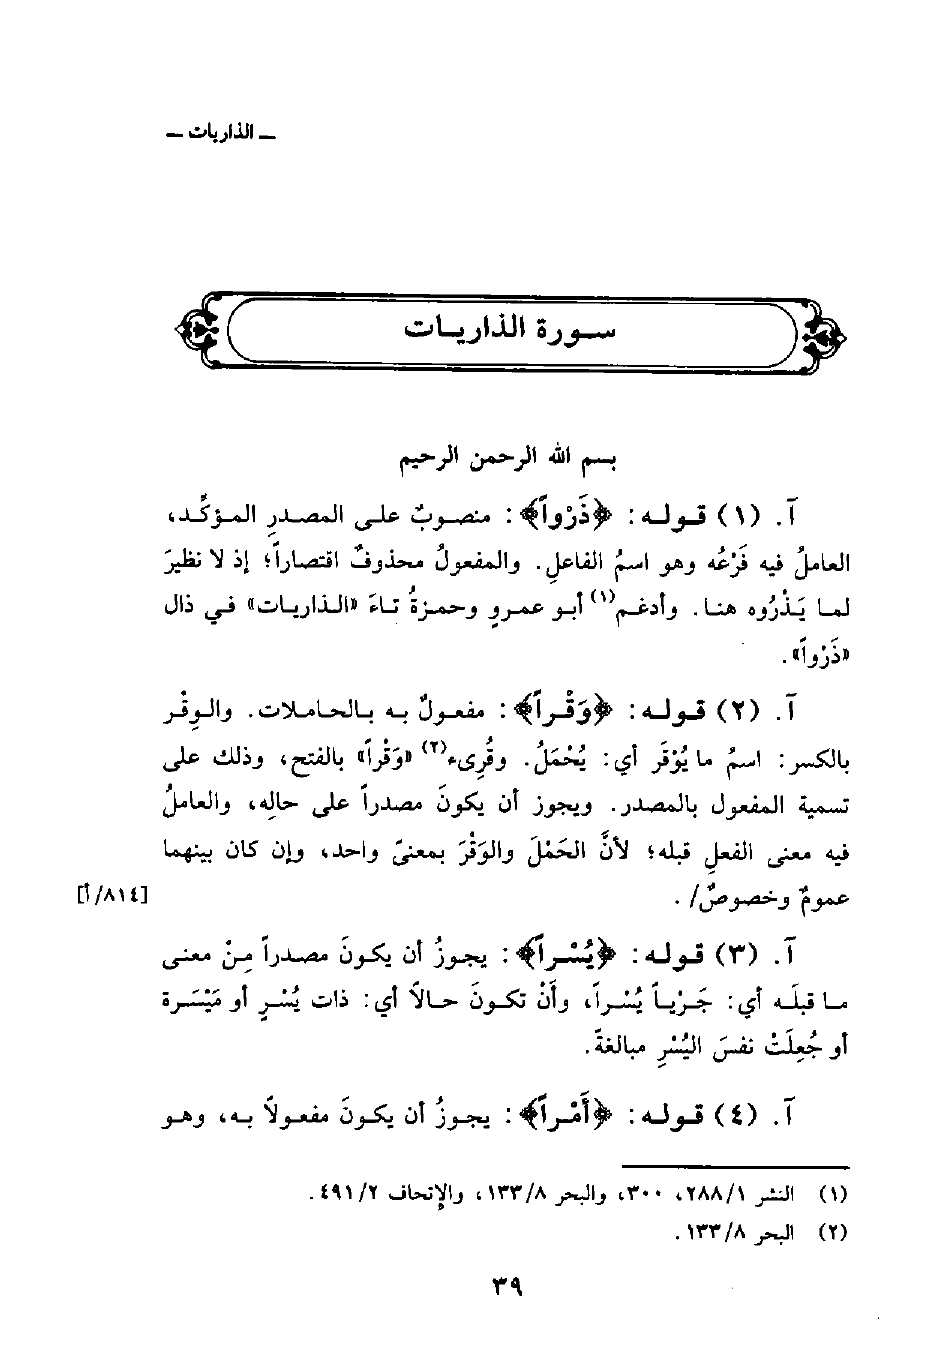 ـ الذاريات ـ
سورة الذاريات
بسم الله الرحمن الرحيم
آ. (١) قوله: ﴿ذَرْواً﴾: منصوبٌ على المصدرِ المؤكِّد،
العاملُ فيه فَرْعُه وهو اسمُ الفاعلِ. والمفعولُ محذوفٌ اقتصاراً؛ إذ لا نظيرَ
لما يَذْرُوه هنا. وأدغم(١) أبو عمروٍ وحمزةُ تاءَ «الذاريات» في ذال
«ذَرْواً».
آ. (٢) قوله: ﴿وَقْراً﴾: مفعولٌ به بالحاملات. والوِقْر
بالكسر: اسمُ ما يُوْقَر أي: يُحْمَلُ. وقُرِىء(٢) «وَقْراً» بالفتح، وذلك على
تسمية المفعول بالمصدر. ويجوز أن يكونَ مصدراً على حالِه، والعاملُ
فيه معنى الفعلِ قبله؛ لأنَّ الحَمْلَ والوَقْرَ بمعنىً واحد، وإن كان بينهما
عمومٌ وخصوصٌ/.
[٨١٤/أ]
آ. (٣) قوله: ﴿يُسْراً﴾: يجوزُ أن يكونَ مصدراً مِنْ معنى
ما قبلَه أي: جَرْياً يُسْراً، وأَنْ تكونَ حالاً أي: ذات يُسْرٍ أو مَيْسَرة
أو جُعِلَتْ نفسَ اليُسْرِ مبالغةً.
آ. (٤) قوله: ﴿أَمْراً﴾: يجوزُ أن يكونَ مفعولاً به، وهو
(١) النشر ٢٨٨/١، ٣٠٠، والبحر ١٣٣/٨، والإتحاف ٤٩١/٢.
(٢) البحر ١٣٣/٨.
٣٩